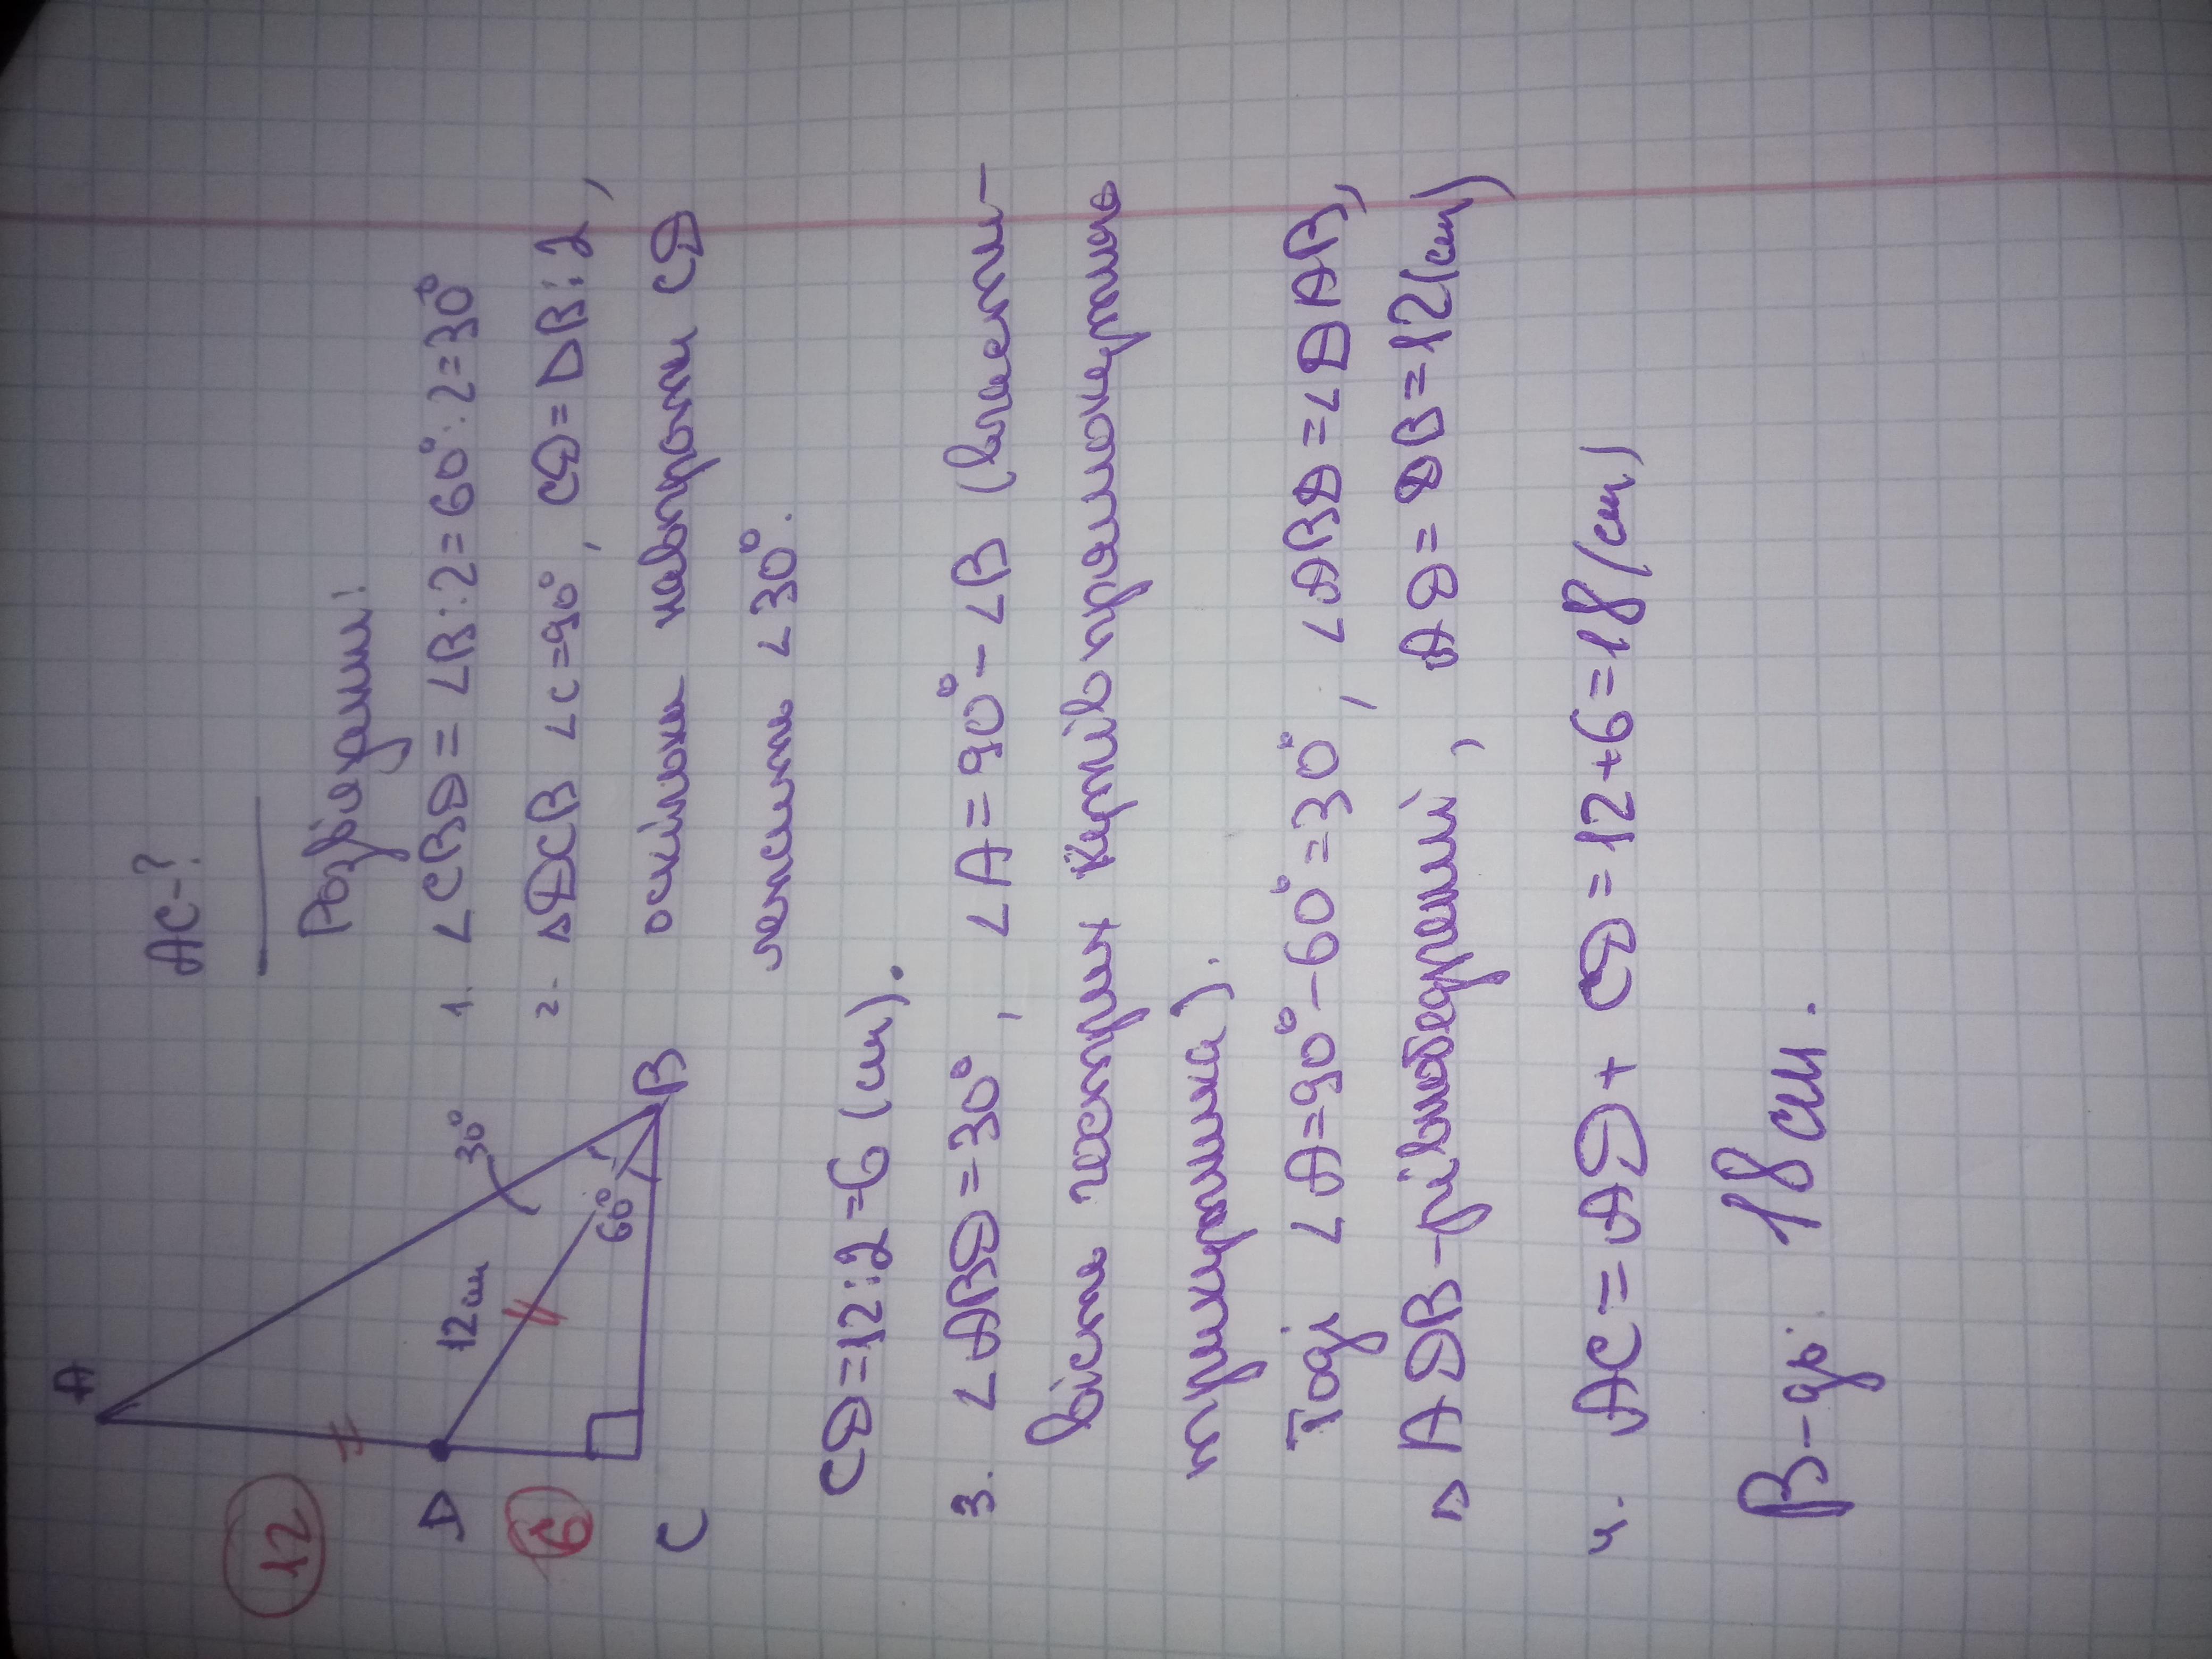 AC-?
Розв'язання:
A
12
12 см
30°
D
6
60°
C
B
1. ∠CBD = ∠B:2 = 60°:2 = 30°
2. △DCB ∠C=90°, CD = DB:2,
оскільки навпроти CD
лежить ∠30°.
CD = 12:2 = 6 (см).
3. ∠ABD = 30°, ∠A = 90° - ∠B (власти-
вість гострих кутів прямокутного
трикутника).
Тоді ∠A = 90° - 60° = 30°, ∠ABD = ∠DAB,
△ADB - рівнобедрений, AD = DB = 12 (см)
4. AC = AD + CD = 12 + 6 = 18 (см)
В-дь: 18 см.